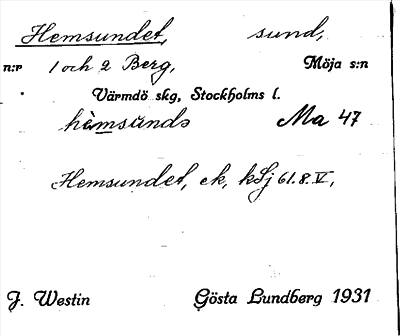 Hemsundet, sund,
n:r 1 och 2 Berg, Möja s:n
Värmdö skg, Stockholms l.
hemsundə Ma 47
Hemsundet, ek, kSj 61.8.V,
J. Westin Gösta Lundberg 1931